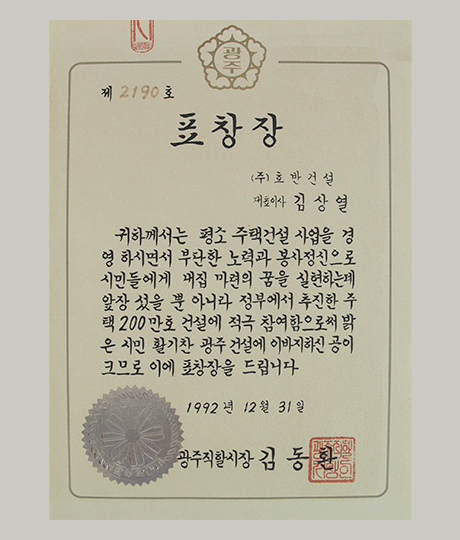 광주
제 2190 호
표창장
(주) 호반건설
대표이사 김상열
귀하께서는 평소 주택건설 사업을 경
영하시면서 부단한 노력과 봉사정신으로
시민들에게 내집 마련의 꿈을 실현하는데
앞장 섰을 뿐 아니라 정부에서 추진한 주
택 200만호 건설에 적극 참여함으로써 밝
은 시민 활기찬 광주 건설에 이바지하신 공이
크므로 이에 표창장을 드립니다
1992년 12월 31일
광주직할시장 김동환